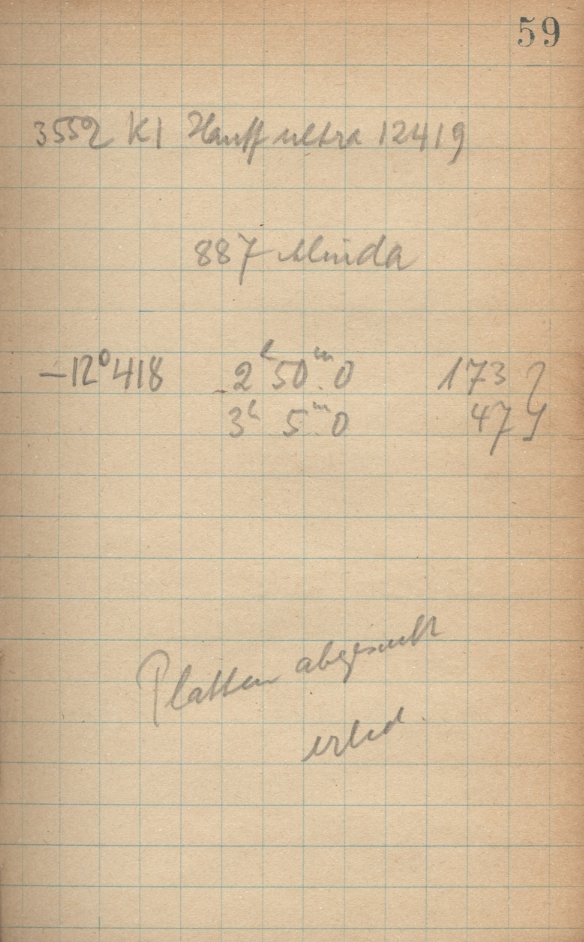 59
3552 Kl Hauff ultra 12419
887 Alinda
-12°418 2h 50m.0 173 }
3h 5m.0 47 }
Platten abgesucht
erled.